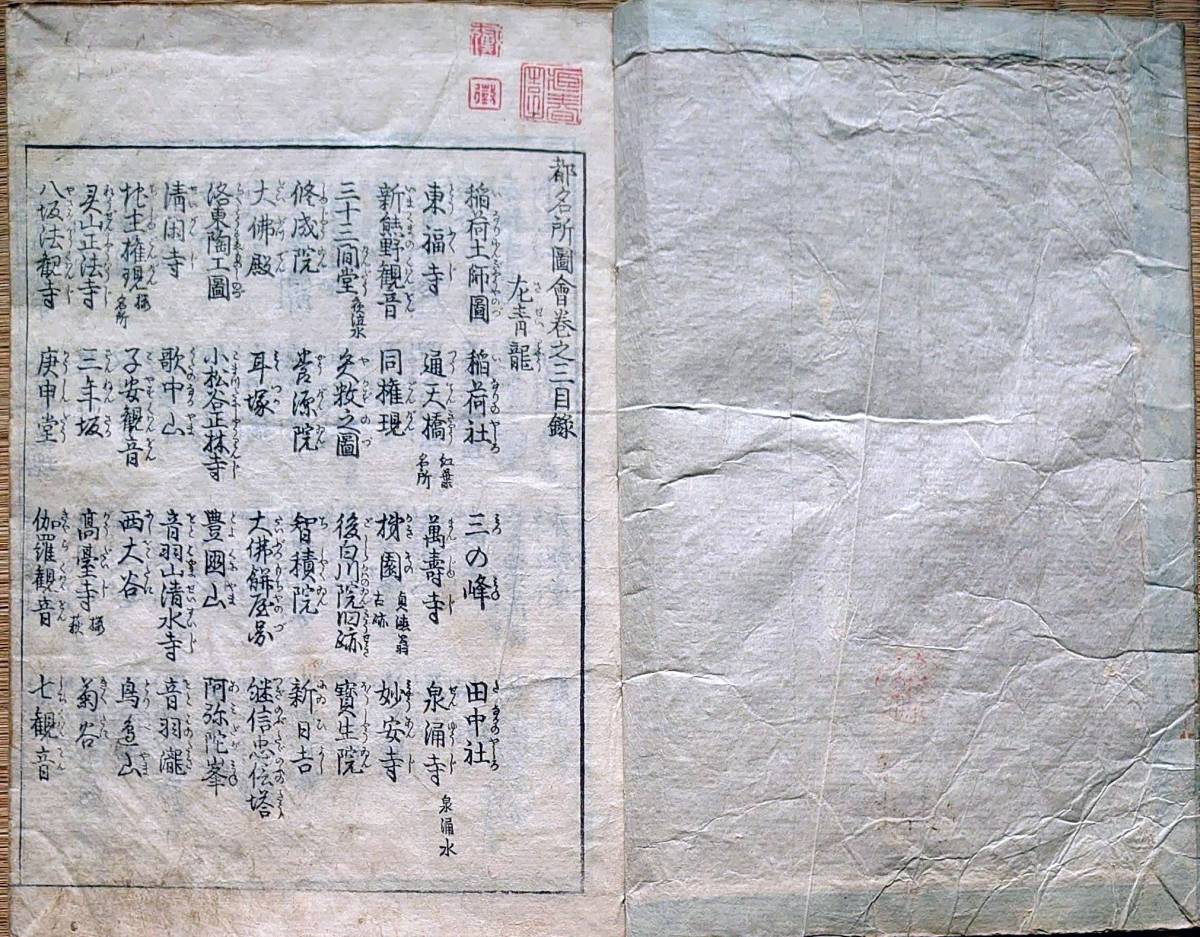 都名所圖會卷之三目錄
左青龍
稲荷土師圖 稲荷社 三の峰 田中社
東福寺 通天橋 紅葉名所 萬壽寺 泉涌寺 泉涌水
新熊野觀音 同権現 柿園 貞徳翁古跡 妙安寺
三十三間堂 矢数之圖 後白川院旧跡 寳生院
修成院 養源院 智積院 新日吉
大佛殿 耳塚 大佛餅屋圖 継信忠信塔
洛東陶工圖 小松谷正林寺 豊國山 阿弥陀峯
清閑寺 歌中山 音羽山清水寺 音羽瀧
地主権現 桜名所 子安觀音 西大谷 鳥邉山
灵山正法寺 三年坂 髙臺寺 桜萩 菊谷
八坂法觀寺 庚申堂 伽羅觀音 七觀音